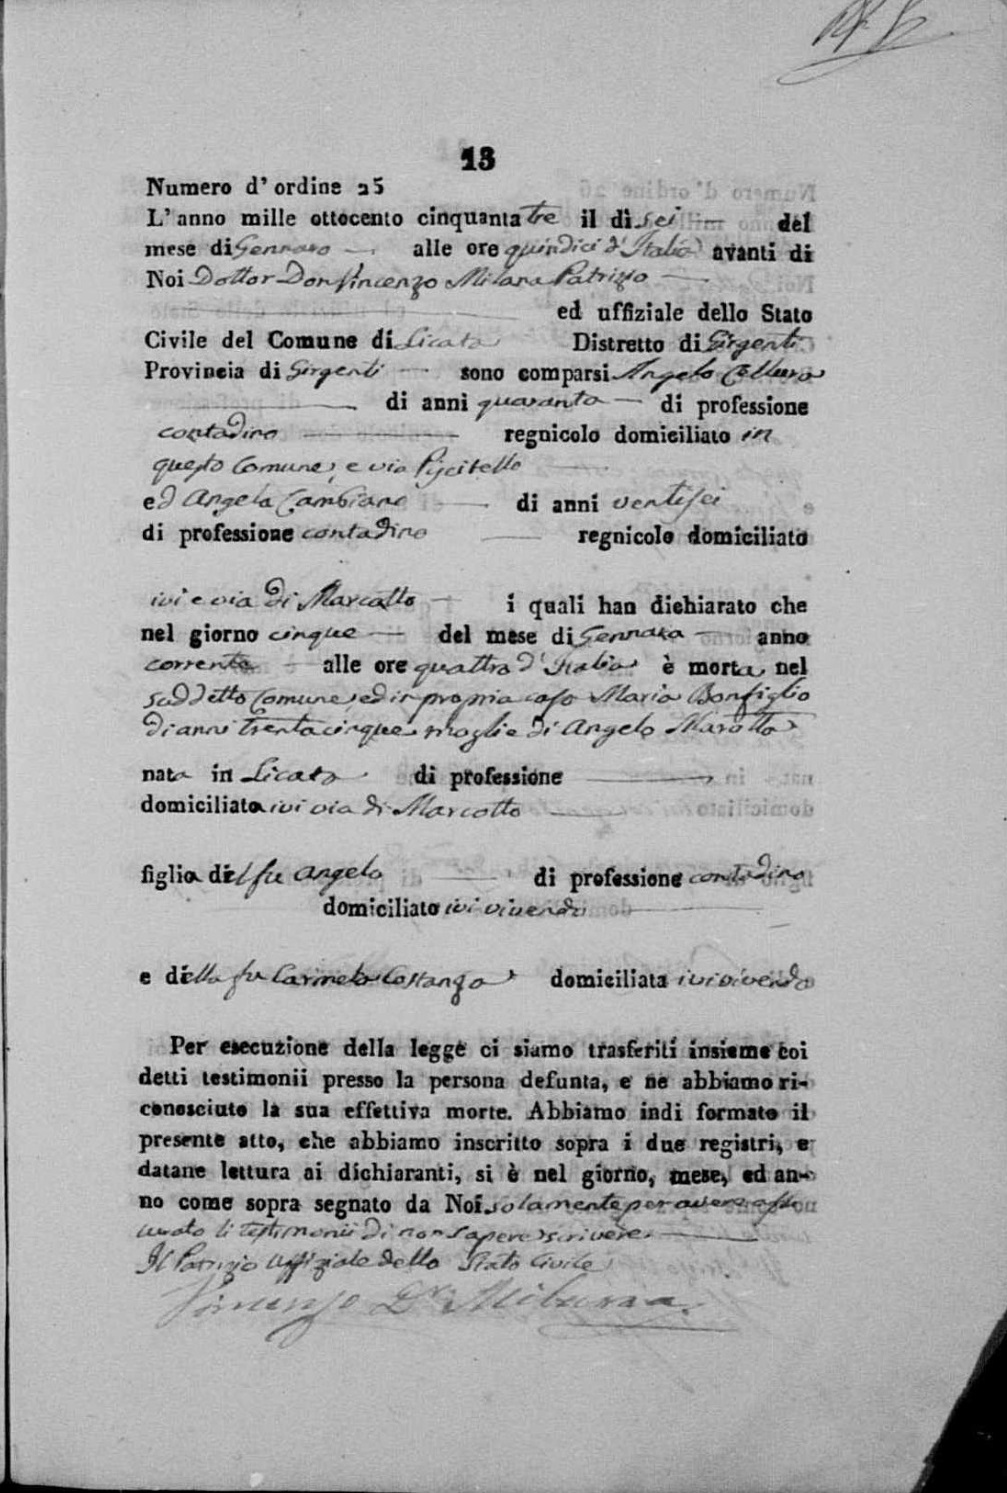 13
Numero d' ordine 25
L' anno mille ottocento cinquanta tre il dì sei del
mese di Gennaro alle ore quindici d' Italia avanti di
Noi Dottor Don Vincenzo Milana Patrizio
ed uffiziale dello Stato
Civile del Comune di Licata Distretto di Girgenti
Provincia di Girgenti sono comparsi Angelo Colluro
di anni quaranta di professione
contadino regnicolo domiciliato in
questo Comune, e via Piscitello
ed Angelo Cambiano di anni ventisei
di professione contadino regnicolo domiciliato
ivi e via di Marcotto i quali han dichiarato che
nel giorno cinque del mese di Gennaro anno
corrente alle ore quattro d' Italia è morta nel
suddetto Comune, ed in propria casa Maria Bonfiglio
di anni trentacinque moglie di Angelo Marotta
nata in Licata di professione
domiciliata ivi via di Marcotto
figlia del fu Angelo di professione contadino
domiciliato ivi vivendo
e della fu Carmela Costanzo domiciliata ivi vivendo
Per esecuzione della legge ci siamo trasferiti insieme coi
detti testimonii presso la persona defunta, e ne abbiamo ri-
conosciuto la sua effettiva morte. Abbiamo indi formato il
presente atto, che abbiamo inscritto sopra i due registri, e
datane lettura ai dichiaranti, si è nel giorno, mese, ed an-
no come sopra segnato da Noi solamente per avere asse
urato li testimonii di non sapere scrivere.
Il Patrizio Uffiziale dello Stato Civile
Vincenzo Dr Milana